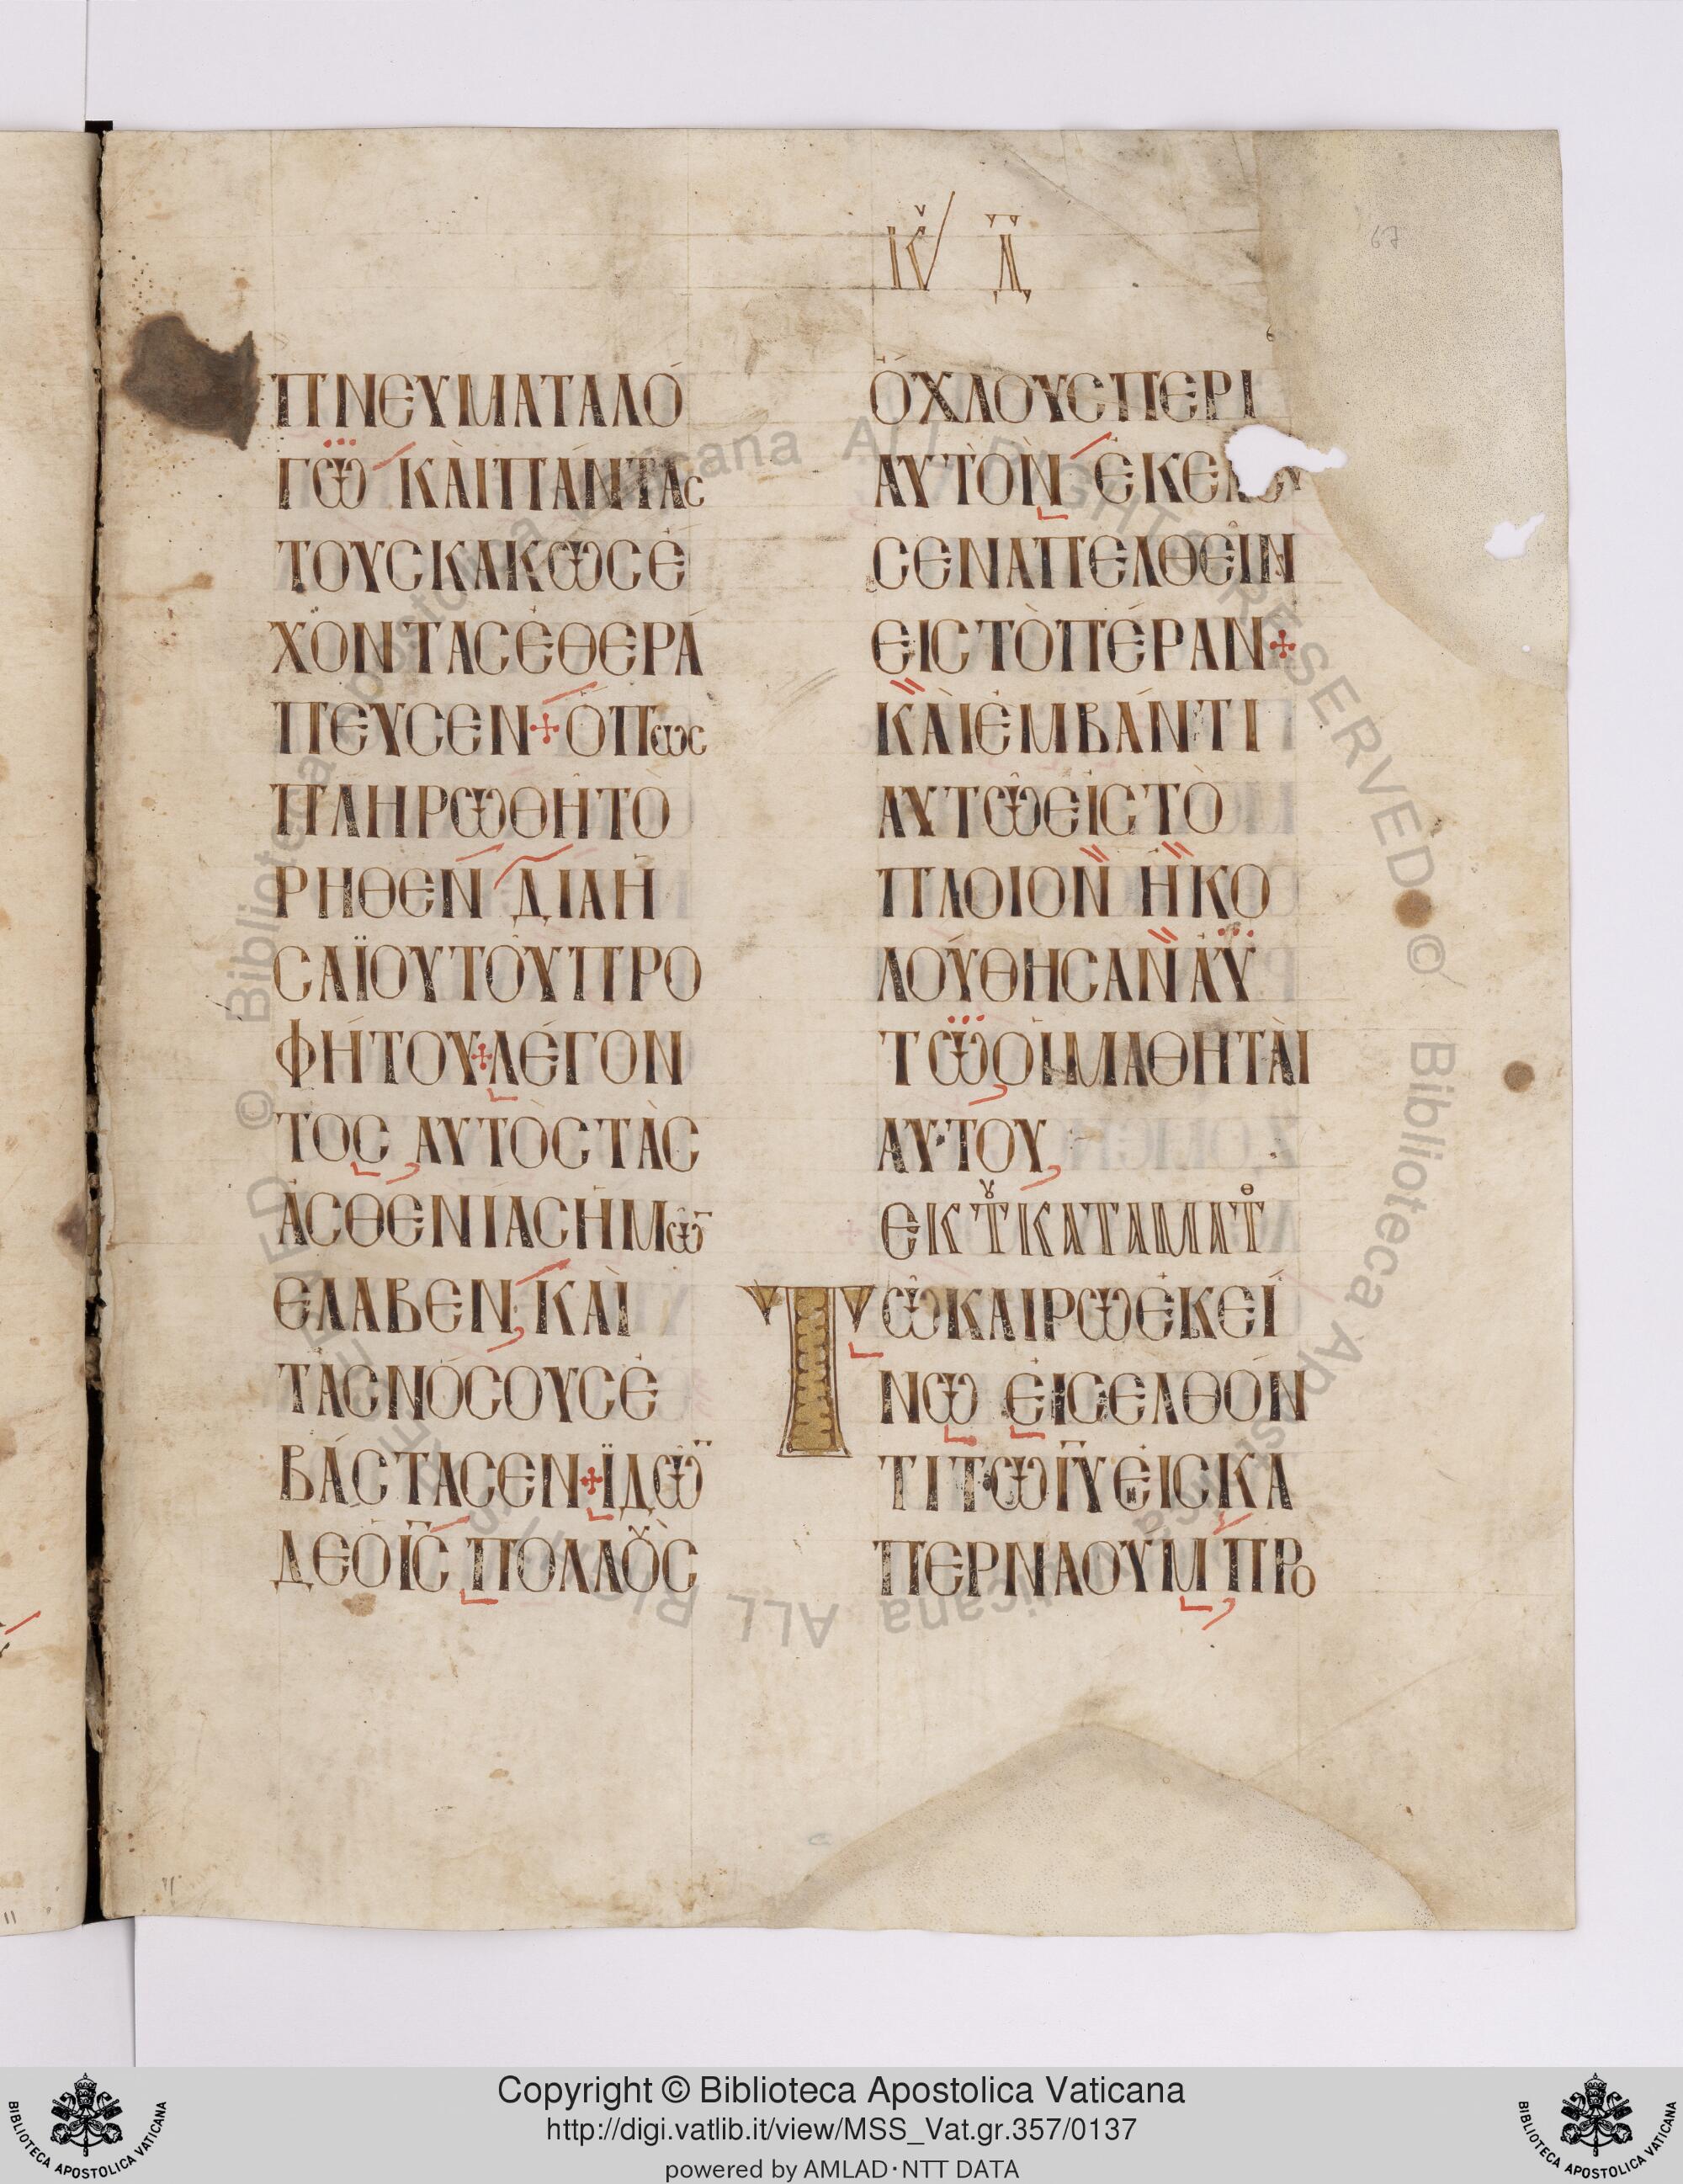 Κ Δ
67
ΠΝΕΥΜΑΤΑΛΟ
ΓΩ ΚΑΙΠΑΝΤΑς
ΤΟΥϹΚΑΚΩϹΕ
ΧΟΝΤΑϹΕΘΕΡΑ
ΠΕΥϹΕΝ+ΟΠως
ΠΛΗΡΩΘΗΤΟ
ΡΗΘΕΝ ΔΙΑΗ
ϹΑΪΟΥΤΟΥΠΡΟ
ΦΗΤΟΥ+ΛΕΓΟΝ
ΤΟϹ ΑΥΤΟϹΤΑϹ
ΑϹΘΕΝΙΑϹΗΜω̅
ΕΛΑΒΕΝ, ΚΑΙ
ΤΑϹΝΟϹΟΥϹΕ
ΒΑϹΤΑϹΕΝ+ΪΔΩ̅
ΔΕΟΙ̅Ϲ̅ ΠΟΛΛΟΥϹ
ΟΧΛΟΥϹΠΕΡΙ
ΑΥΤΟΝ ΕΚΕΛΕΥ
ϹΕΝΑΠΕΛΘΕΙΝ
ΕΙϹΤΟΠΕΡΑΝ+
ΚΑΙΕΜΒΑΝΤΙ
ΑΥΤΩΕΙϹΤΟ
ΠΛΟΙΟΝ ΗΚΟ
ΛΟΥΘΗϹΑΝΑΥ
ΤΩΟΙΜΑΘΗΤΑΙ
ΑΥΤΟΥ
ΕΚ ΤΟΥ ΚΑΤΑΜΑΤΘ
ΤΩΚΑΙΡΩΕΚΕΙ
ΝΩ ΕΙϹΕΛΘΟΝ
ΤΙΤΩΙ̅Υ̅ΕΙϹΚΑ
ΠΕΡΝΑΟΥΜ ΠΡΟ
Copyright © Biblioteca Apostolica Vaticana
http://digi.vatlib.it/view/MSS_Vat.gr.357/0137
powered by AMLAD·NTT DATA
BIBLIOTECA APOSTOLICA VATICANA
BIBLIOTECA APOSTOLICA VATICANA